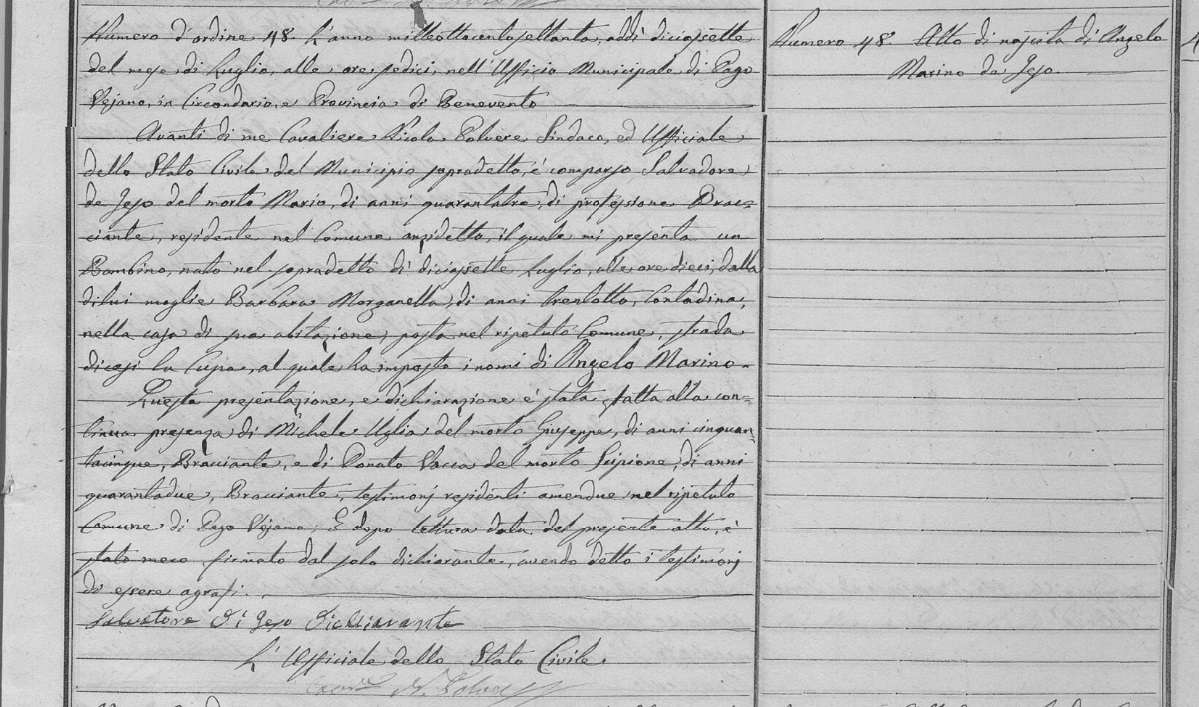 Numero d'ordine 48. L'anno milleottocentosettanta, addì diciassette
del mese di Luglio, alle ore sedici, nell'Ufficio Municipale di Pago
Vejano, in Circondario, e Provincia di Benevento
Avanti di me Cavaliere Nicola Polvere Sindaco, ed Uffiziale
dello Stato Civile del Municipio sopradetto, è comparso Salvadore
de Jeso del morto Mario, di anni quarantatre, di professione Brac=
ciante, residente nel Comune anzidetto, il quale mi presenta un
Bambino, nato nel sopradetto dì diciassette Luglio, alle ore dieci, dalla
dilui moglie Barbara Morganella, di anni trentotto, Contadina,
nella casa di sua abitazione, posta nel ripetuto Comune, strada
dicasi la Cupa, al quale ha imposto i nomi di Angelo Marino-
Questa presentazione, e dichiarazione è stata fatta alla con=
tinua presenza di Michele Uglia del morto Giuseppe, di anni cinquan
tacinque, Bracciante, e di Donato Vacca del morto Scipione, di anni
quarantadue, Bracciante, testimonj residenti amendue nel ripetuto
Comune di Pago Vejano; E dopo lettura data del presente atto, è
stato meco firmato dal solo dichiarante, avendo detto i testimonj
di essere agrafi.
Salvatore Di Jeso Dichiarante
L'Uffiziale dello Stato Civile
Cav. N. Polvere
Numero 48. Atto di nascita di Angelo
Marino de Jeso.